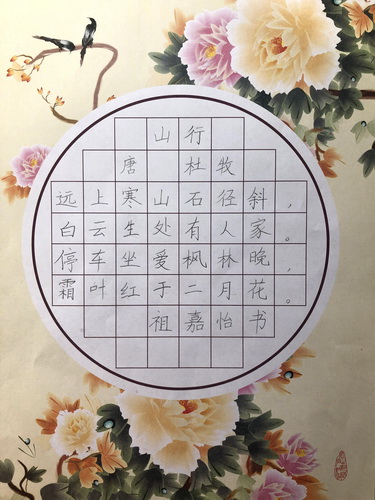 山行
唐 杜牧
远上寒山石径斜，
白云生处有人家。
停车坐爱枫林晚，
霜叶红于二月花。
祖嘉怡书